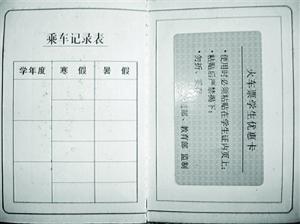 乘车记录表
学年度 寒 假 暑 假
火车票学生优惠卡
·使用时必须粘贴在学生证内页上;
·粘贴后严禁揭下;
·勿折、
部、教育部 监制